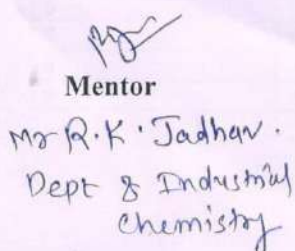 Mentor
Mr R.K. Jadhav.
Dept & Industrial
Chemistry